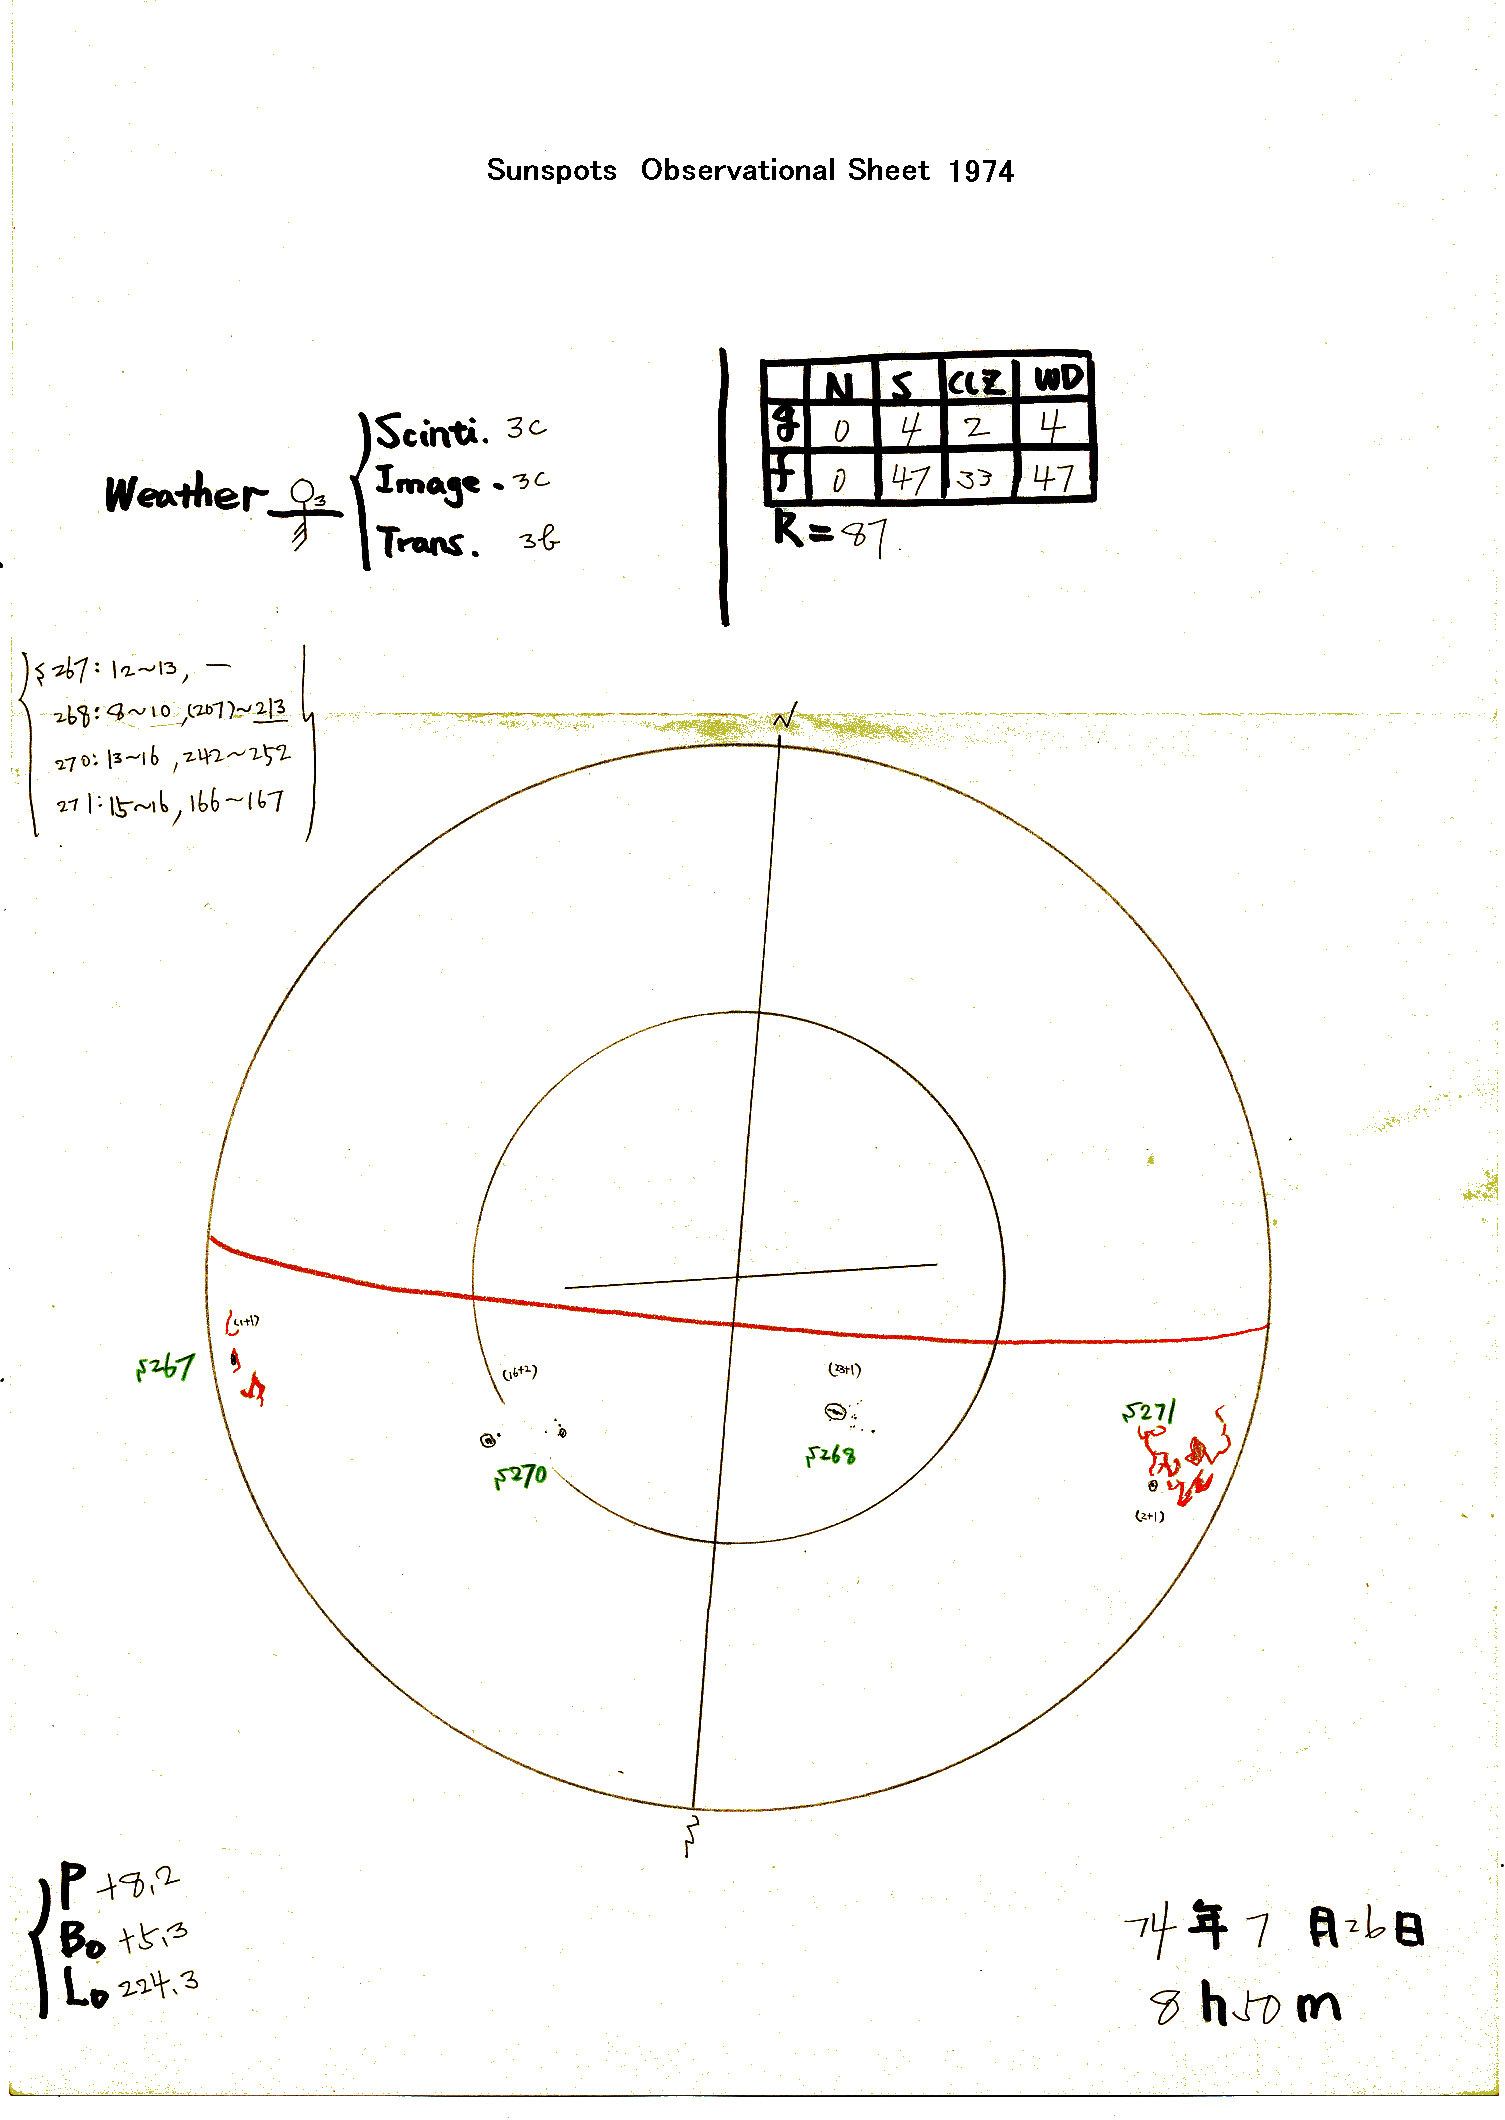 Sunspots Observational Sheet 1974
N S CLZ WD
g 0 4 2 4
f 0 47 33 47
R = 87
Weather
Scinti. 3c
Image. 3c
Trans. 3b
S267: 12~13, —
268: 8~10, (207)~213
270: 13~16, 242~252
271: 15~16, 166~167
N
(1+1)
S267
(16+2)
S270
(23+1)
S268
S271
(2+1)
S
P +8.2
B0 +5.3
L0 224.3
74年7月26日
8h50m